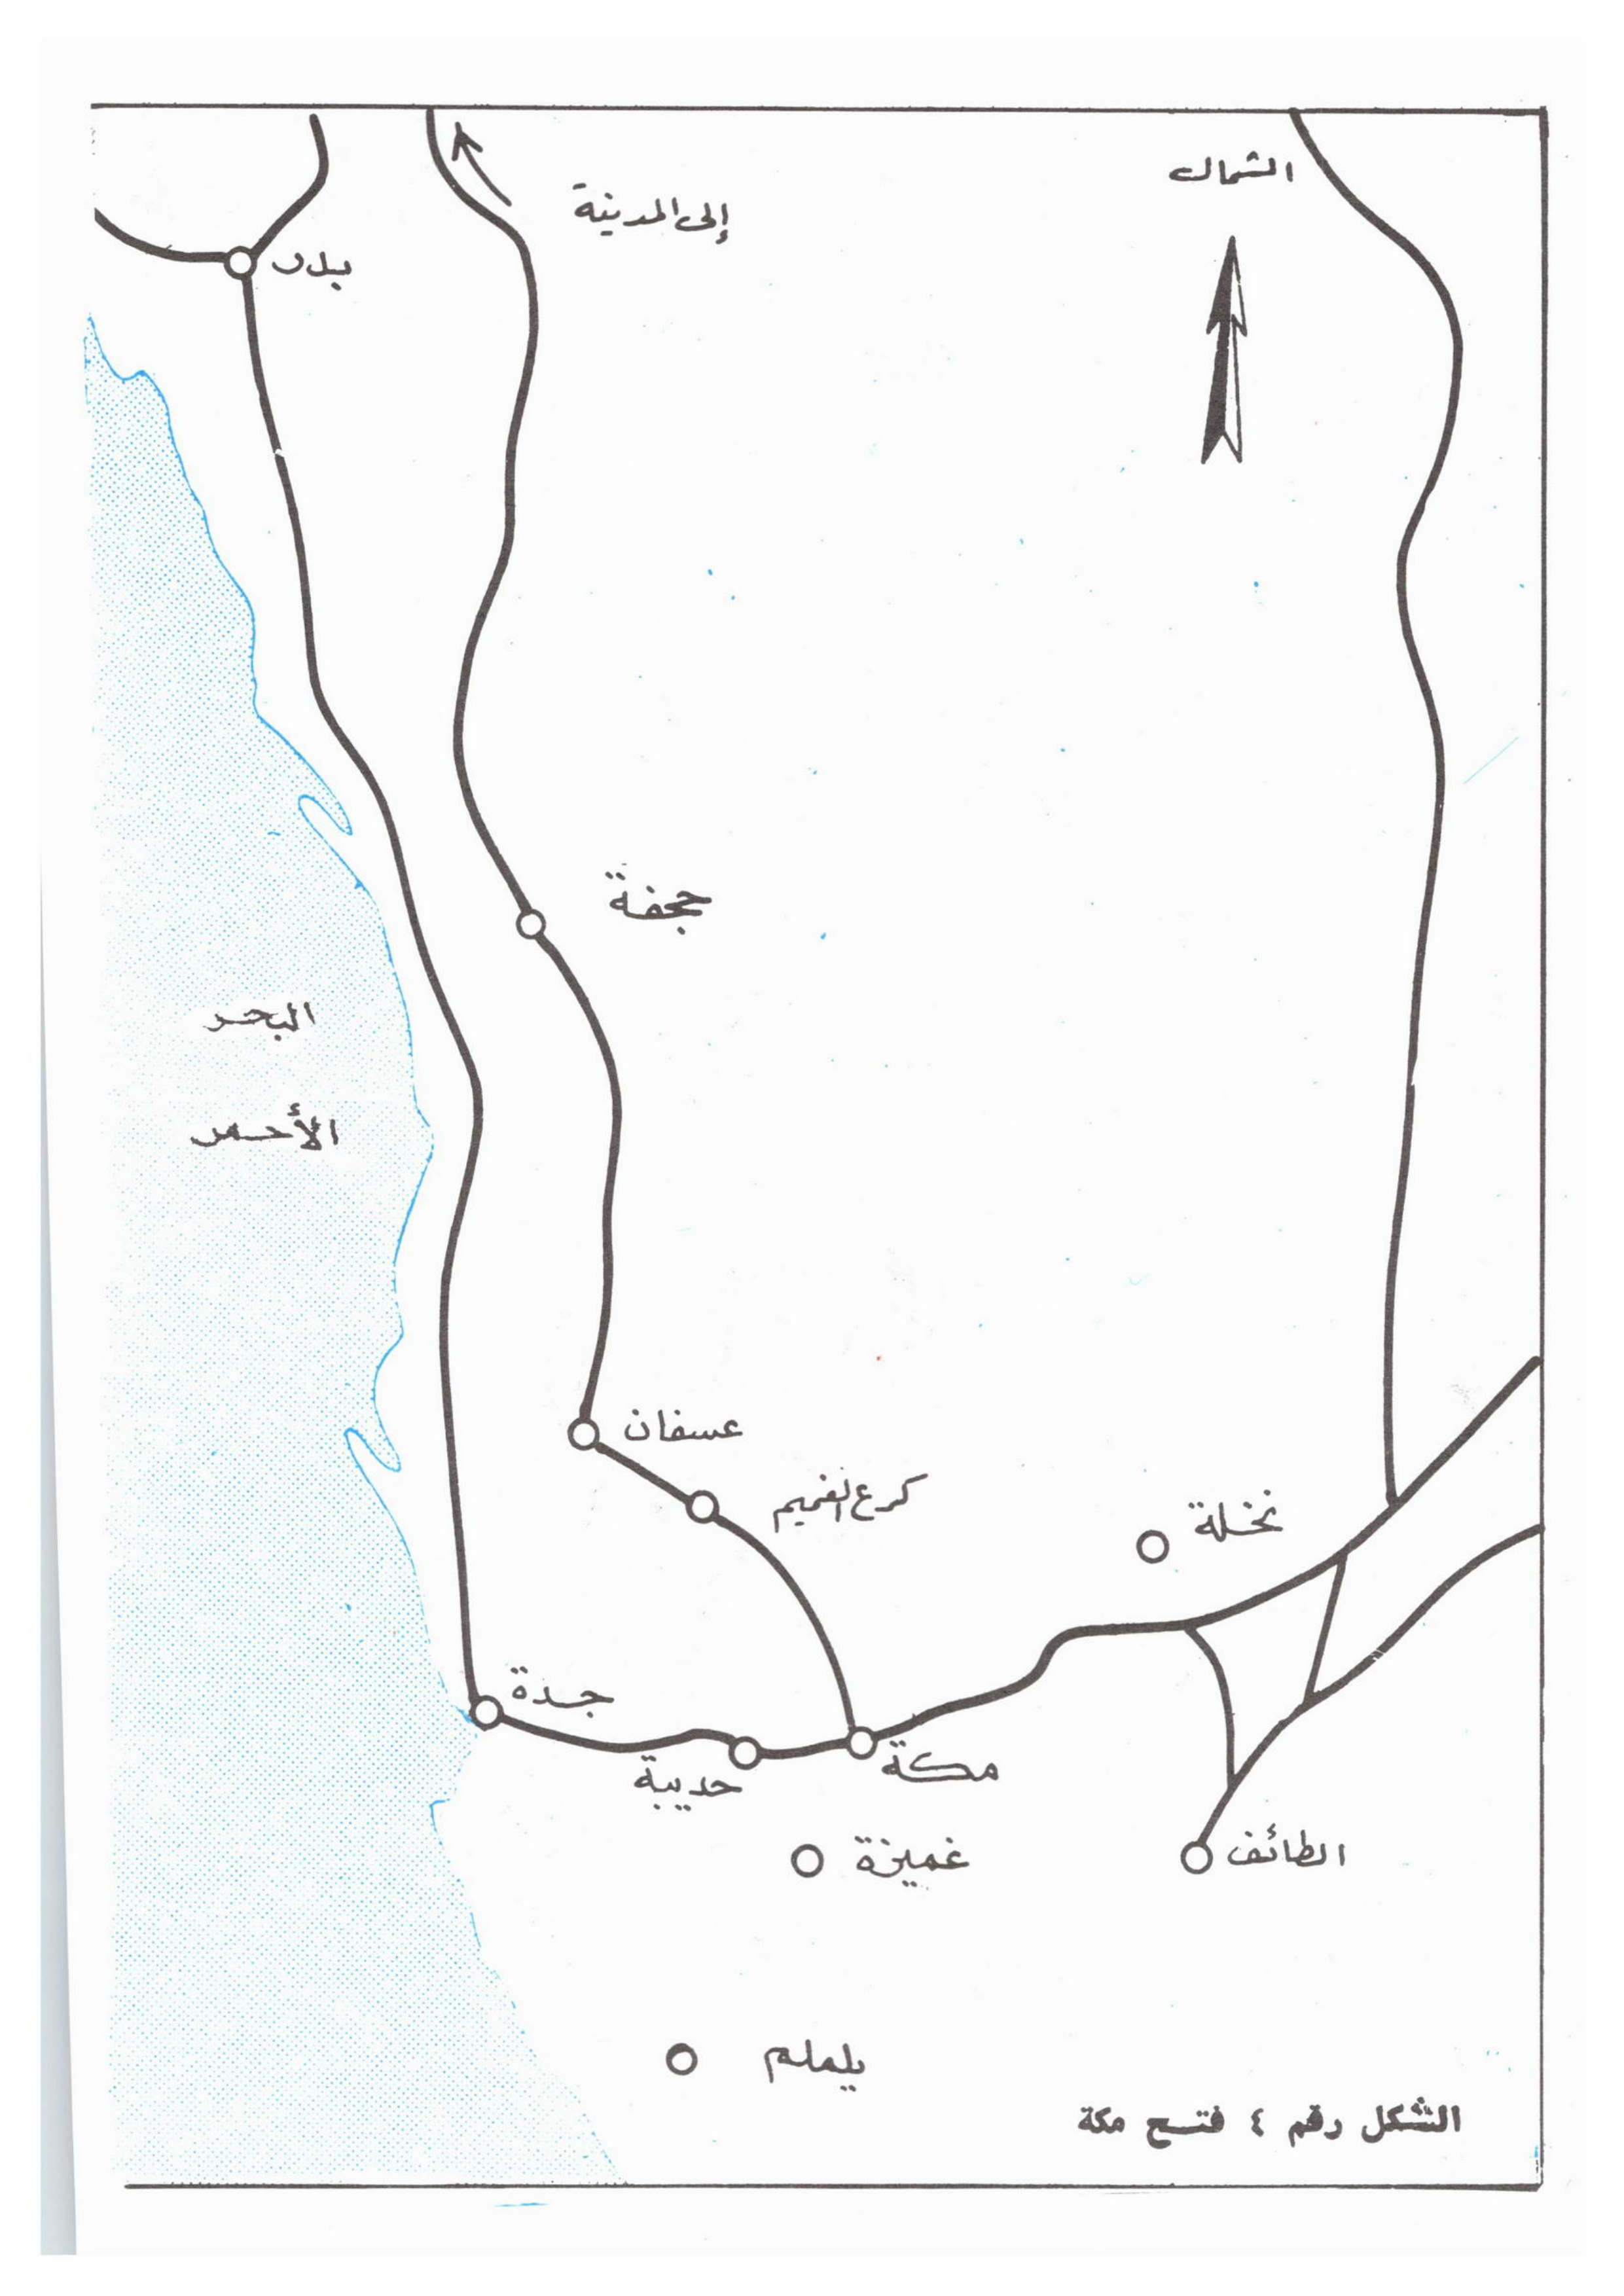 الشمال
إلى المدينة
بدر
جحفة
البحر
الأحمر
عسفان
كرع الغميم
نخلة
جدة
حديبة
مكة
غميزة
الطائف
يلملم
الشكل رقم ٤ فتح مكة